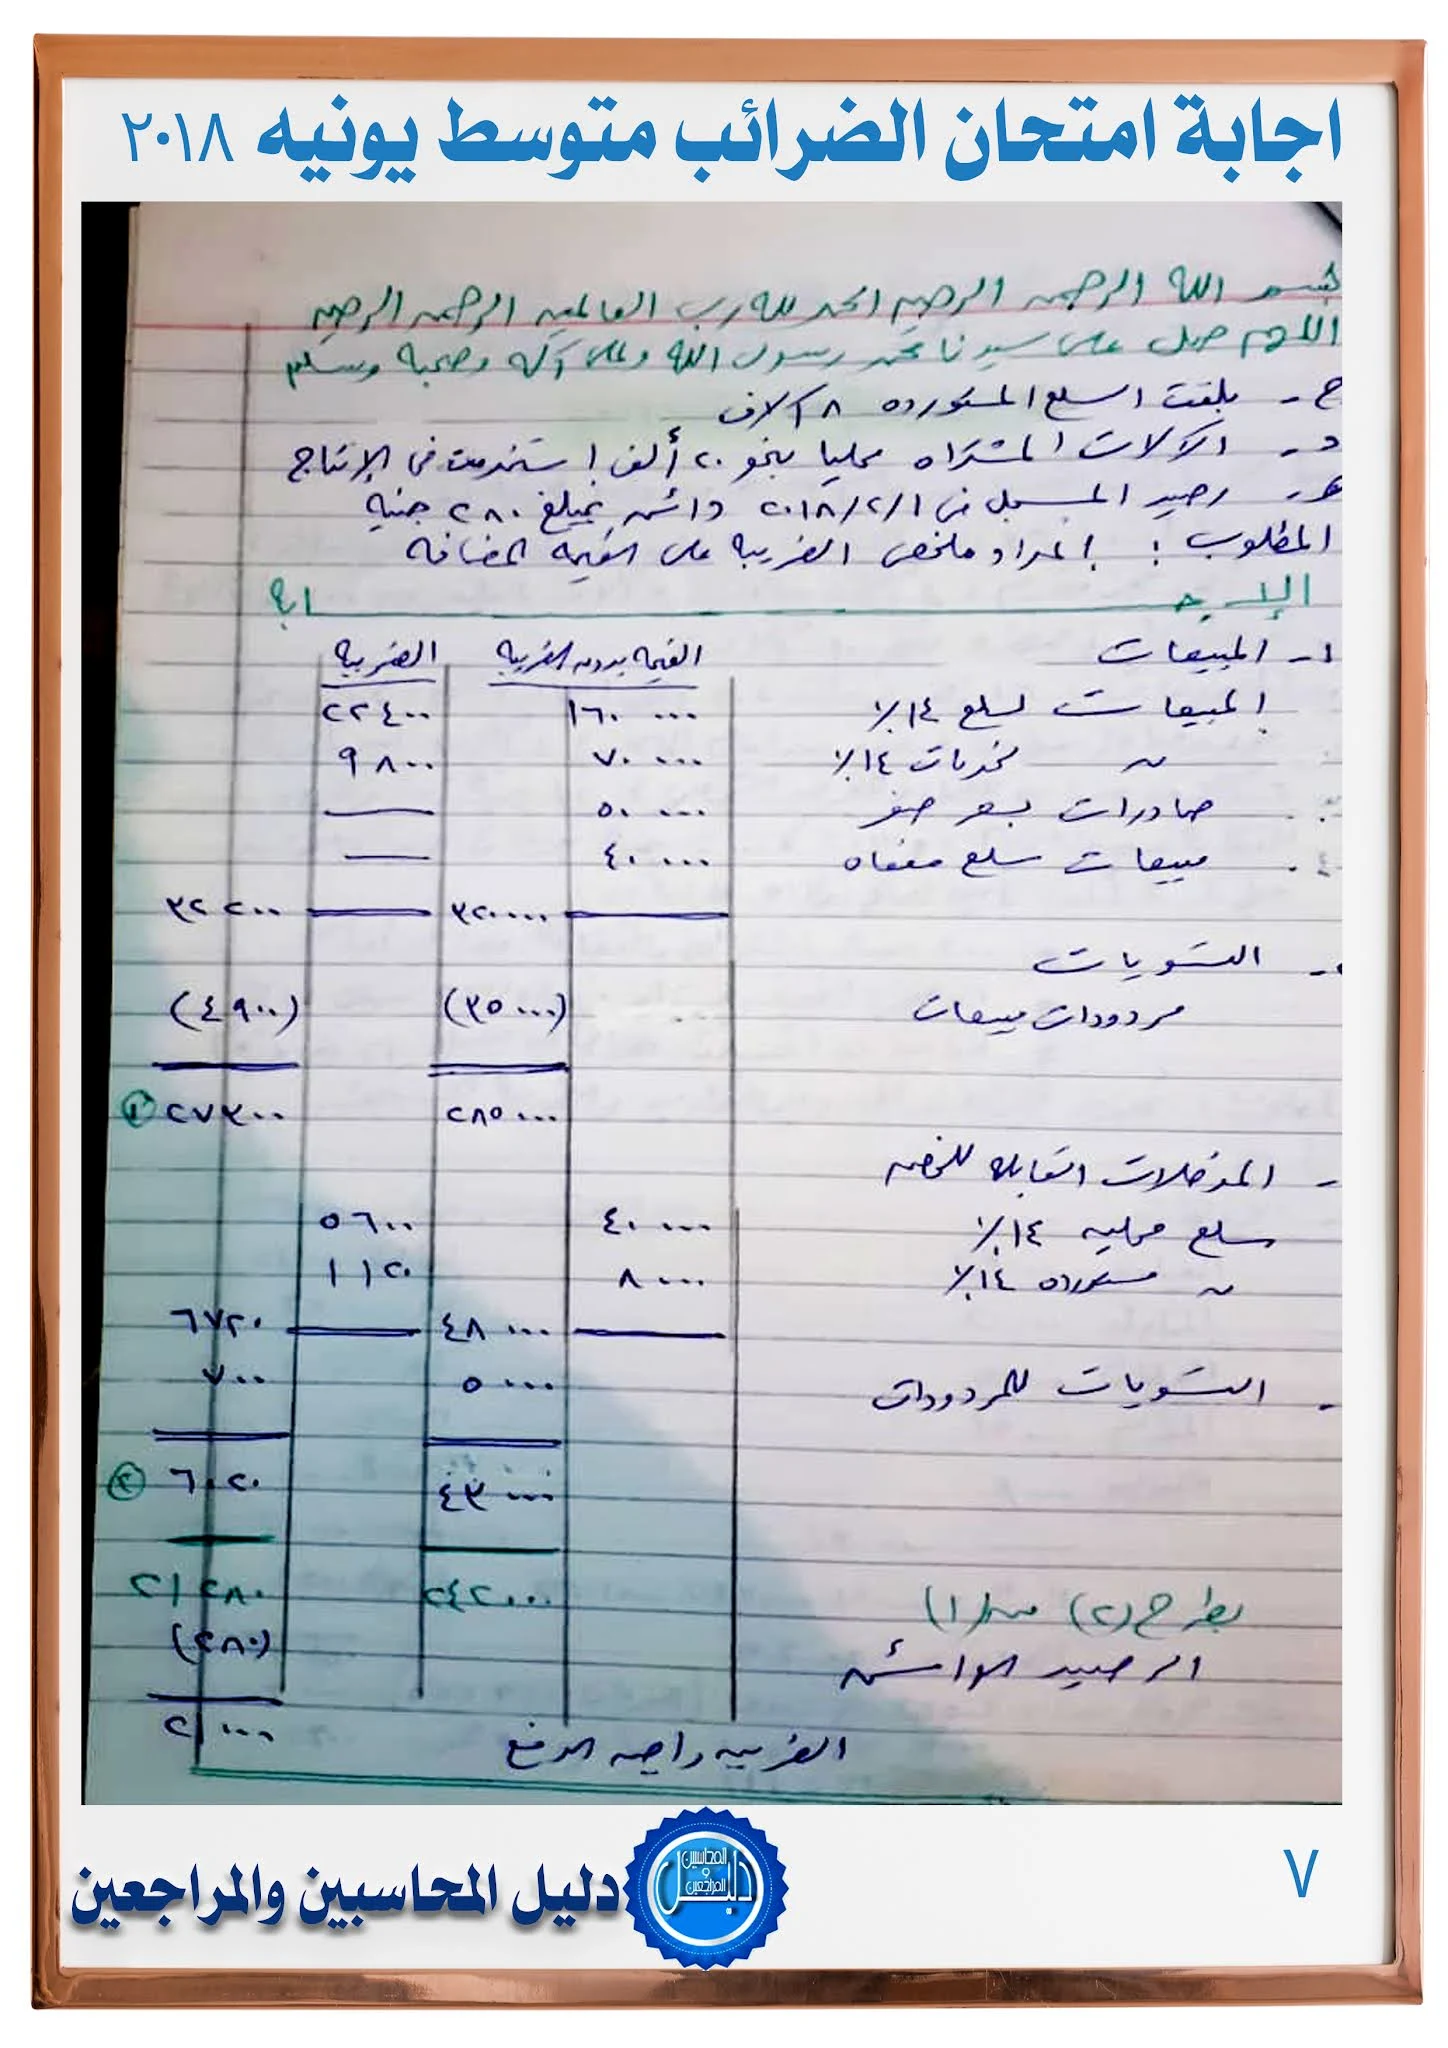 اجابة امتحان الضرائب متوسط يونيه ٢٠١٨
بسم الله الرحمن الرحيم الحمد لله رب العالمين الرحمن الرحيم
اللهم صل على سيدنا محمد رسول الله وعلى آله وصحبه وسلم
ح - بلغت السلع المستورده ٨ آلاف
د - الآلات المشتراه محليا بنحو ٢٠ ألف استخدمت فى الإنتاج
هـ - رصيد المسجل فى ٢٠١٨/٢/١ دائن بمبلغ ٢٨٠ جنيه
المطلوب : إعداد ملخص الضريبة على القيمة المضافة
الإجــــــابة
١ - المبيعات القيمة بدون الضريبة الضريبة
المبيعات لسلع ١٤٪ ١٦٠٠٠٠ ٢٢٤٠٠
〃 لخدمات ١٤٪ ٧٠٠٠٠ ٩٨٠٠
صادرات بسعر صفر ٥٠٠٠٠ ــــ
٤. مبيعات سلع معفاه ٤٠٠٠٠ ــــ
٣٢٠٠٠٠ ٣٢٢٠٠
- التسويات
مردودات مبيعات (٣٥٠٠٠) (٤٩٠٠)
٢٨٥٠٠٠ ٢٧٣٠٠ ①
- المدخلات القابلة للخصم
سلع محليه ١٤٪ ٤٠٠٠٠ ٥٦٠٠
〃 مستورده ١٤٪ ٨٠٠٠ ١١٢٠
٤٨٠٠٠ ٦٧٢٠
- التسويات للمردودات ٥٠٠٠ ٧٠٠
٤٣٠٠٠ ٦٠٢٠ ②
بطرح (٢) من (١) ٢٤٢٠٠٠ ٢١٢٨٠
الرصيد الدائن (٢٨٠)
الضريبه واجبه الدفع ٢١٠٠٠
دليل المحاسبين والمراجعين
دليل المحاسبين و المراجعين
٧